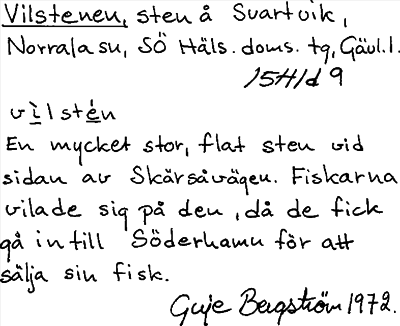 Vilstenen, sten å Svartvik,
Norrala sn, SÖ Häls. doms. tg, Gävl. l.
15H1d 9
vìlstén
En mycket stor, flat sten vid
sidan av Skärsåvägen. Fiskarna
vilade sig på den, då de fick
gå in till Söderhamn för att
sälja sin fisk.
Guje Bergström 1972.